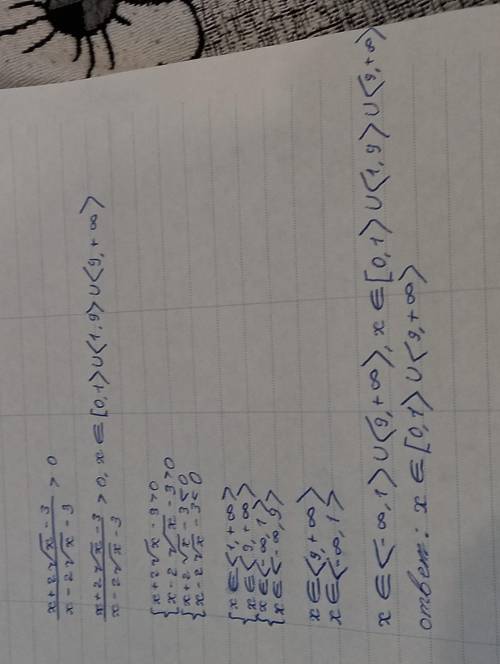 x+2√x-3 / x-2√x-3 > 0
x+2√x-3 / x-2√x-3 > 0, x ∈ [0,1⟩ ∪ ⟨1,9⟩ ∪ ⟨9,+∞⟩
{ x+2√x-3>0
x-2√x-3>0
{ x+2√x-3<0
x-2√x-3<0
{ x ∈ ⟨1,+∞⟩
x ∈ ⟨9,+∞⟩
{ x ∈ ⟨-∞,1⟩
x ∈ ⟨-∞,9⟩
x ∈ ⟨9,+∞⟩
x ∈ ⟨-∞,1⟩
x ∈ ⟨-∞,1⟩ ∪ ⟨9,+∞⟩, x ∈ [0,1⟩ ∪ ⟨1,9⟩ ∪ ⟨9,+∞⟩
ответ: x ∈ [0,1⟩ ∪ ⟨9,+∞⟩